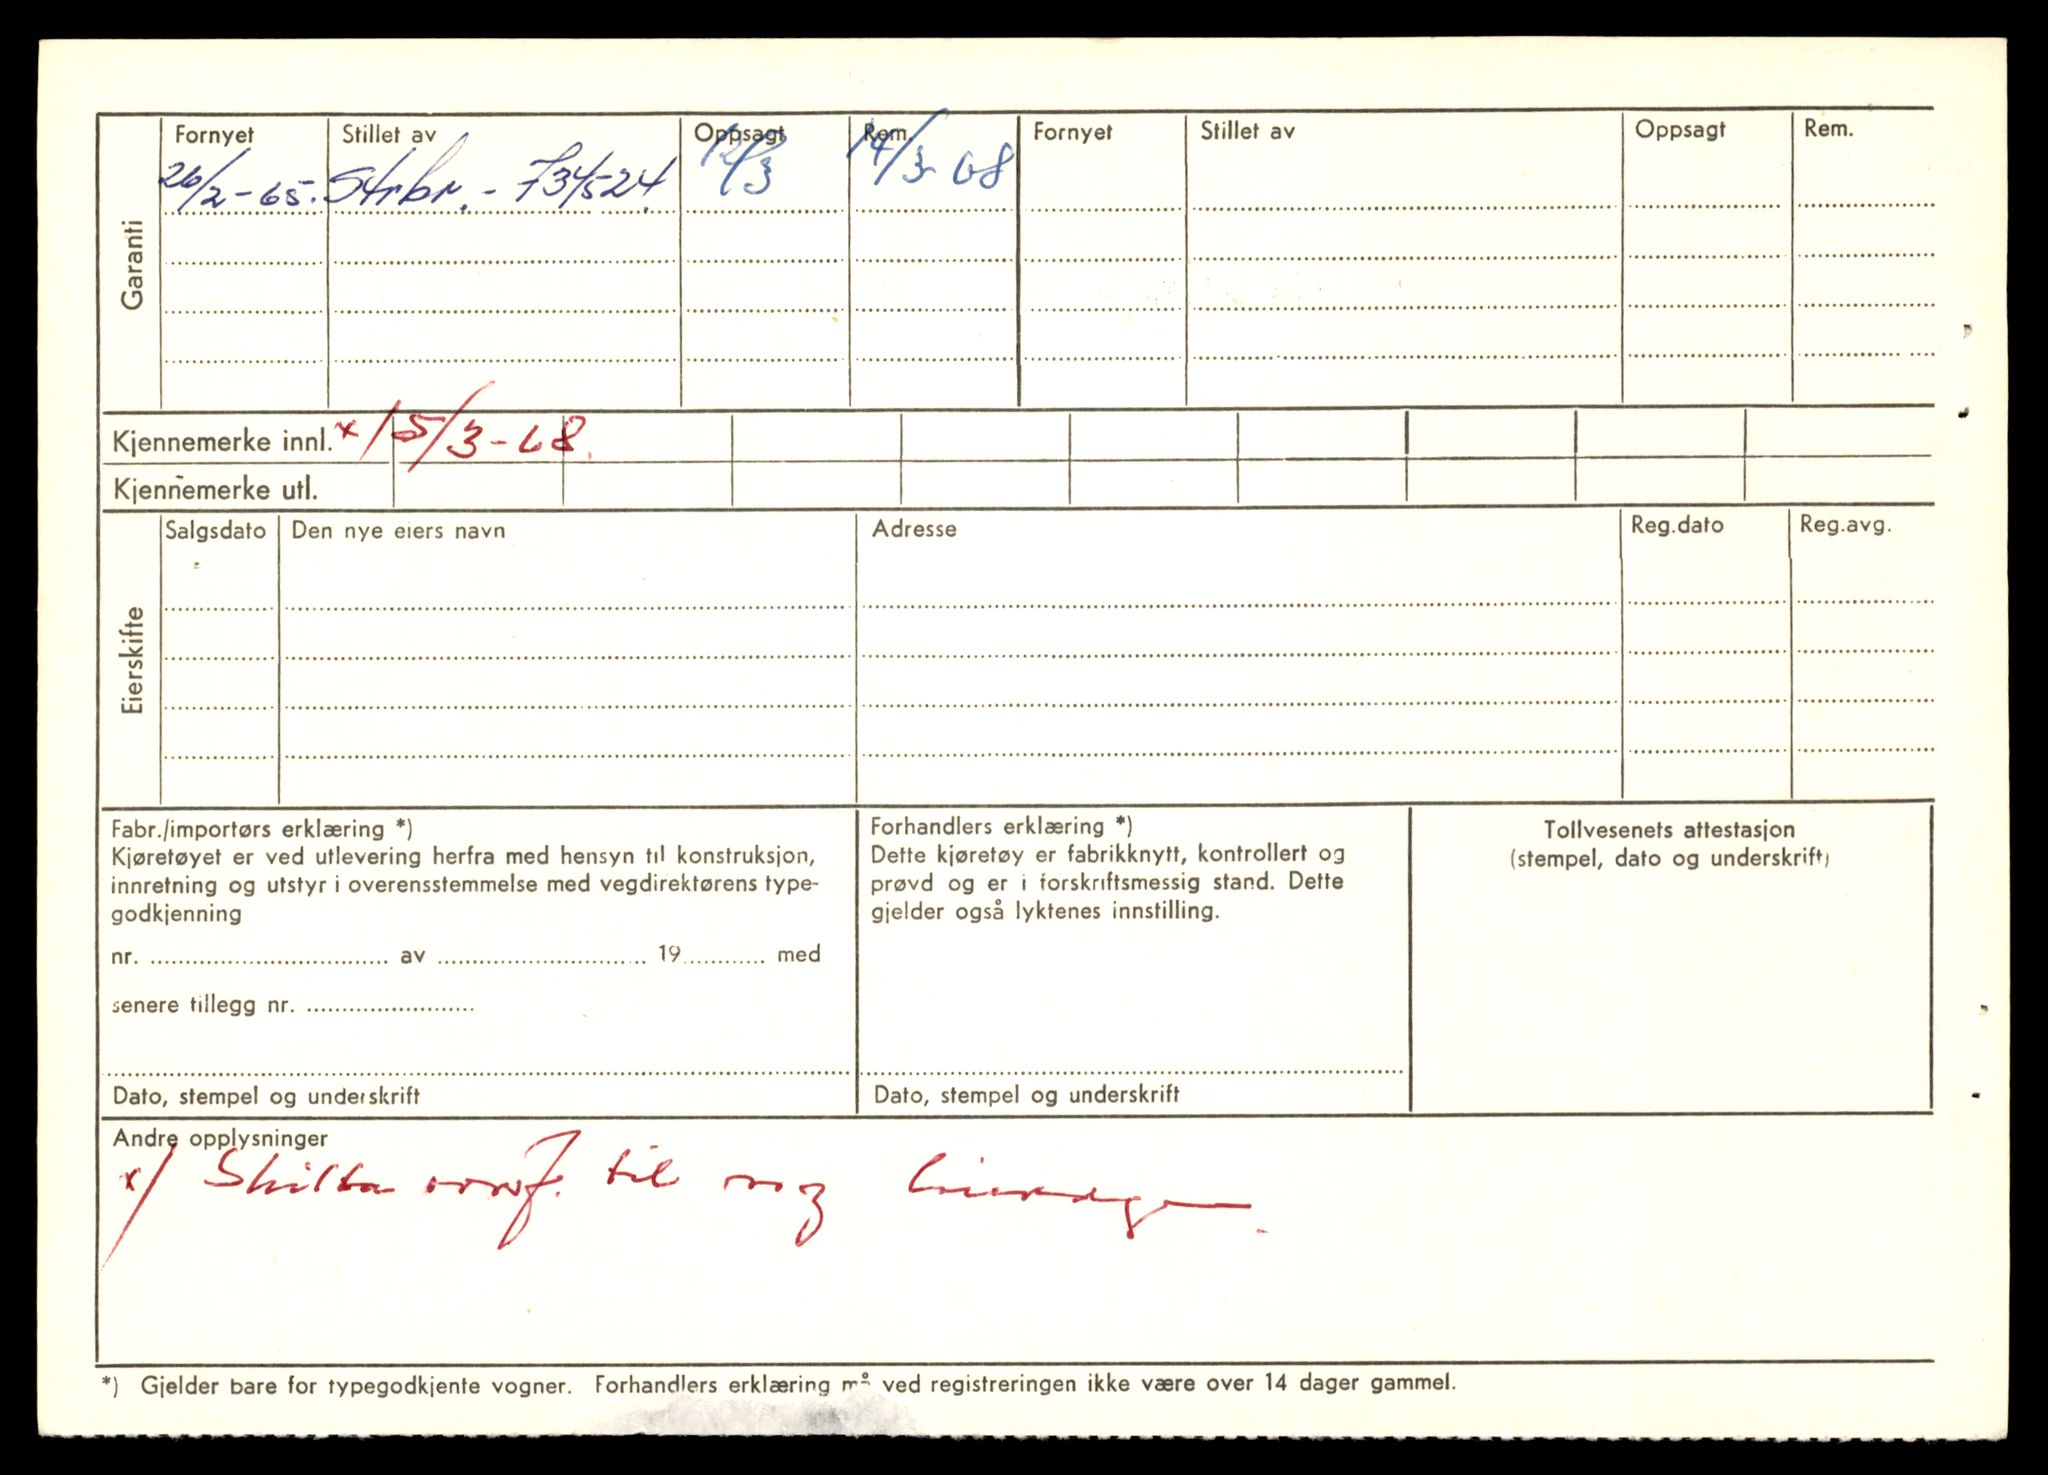 Garanti
Fornyet Stillet av Oppsagt Rem. Fornyet Stillet av Oppsagt Rem.
26/2-65. Strbr. - 734524. 12/3 14/3-68
Kjennemerke innl. x/ 15/3-68.
Kjennemerke utl.
Eierskifte
Salgsdato Den nye eiers navn Adresse Reg.dato Reg.avg.
Fabr./importørs erklæring *)
Kjøretøyet er ved utlevering herfra med hensyn til konstruksjon,
innretning og utstyr i overensstemmelse med vegdirektørens type-
godkjenning
nr. ........ av ........ 19........ med
senere tillegg nr. ........
Dato, stempel og underskrift
Forhandlers erklæring *)
Dette kjøretøy er fabrikknytt, kontrollert og
prøvd og er i forskriftsmessig stand. Dette
gjelder også lyktenes innstilling.
Dato, stempel og underskrift
Tollvesenets attestasjon
(stempel, dato og underskrift)
Andre opplysninger
x/ Skilta overf. til ny
*) Gjelder bare for typegodkjente vogner. Forhandlers erklæring må ved registreringen ikke være over 14 dager gammel.